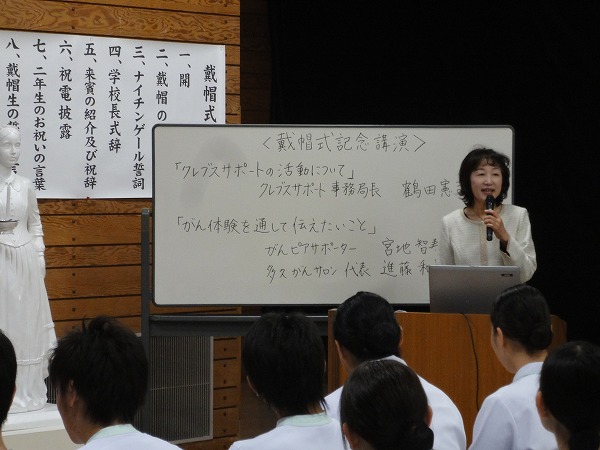 戴帽式
一、開
二、戴帽の
三、ナイチンゲール誓詞
四、学校長式辞
五、来賓の紹介及び祝辞
六、祝電披露
七、二年生のお祝いの言葉
八、戴帽生の誓
言
<戴帽式記念講演>
「クレブスサポートの活動について」
クレブスサポート 事務局長 鶴田憲
「がん体験を通して伝えたいこと」
がんピアサポーター 宮地智
多久がんサロン 代表 進藤和